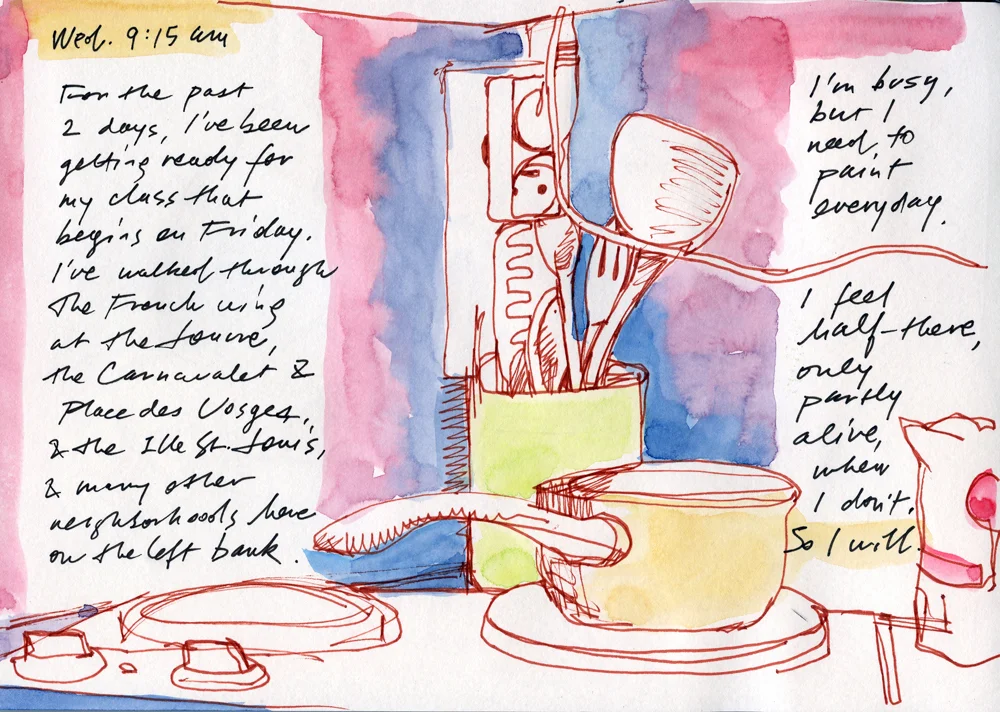 Wed. 9:15 am
For the past
2 days, I've been
getting ready for
my class that
begins on Friday.
I've walked through
the French wing
at the Louvre,
the Carnavalet &
Place des Vosges,
& the Ille St. Louis,
& many other
neighborhoods here
on the left bank.
I'm busy,
but I
need to
paint
everyday.
I feel
half-there,
only
partly
alive,
when
I don't.
So I will.